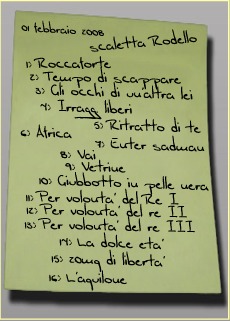 01 febbraio 2008
scaletta Rodello
1) Roccaforte
2) Tempo di scappare
3) Gli occhi di un'altra lei
4) Irragg liberi
5) Ritratto di te
6) Africa
7) Enter sadman
8) Vai
9) Vetrine
10) Giubbotto in pelle nera
11) Per volontà del Re I
12) Per volontà del re II
13) Per volontà del re III
14) La dolce età
15) 20mq di libertà
16) L'aquilone